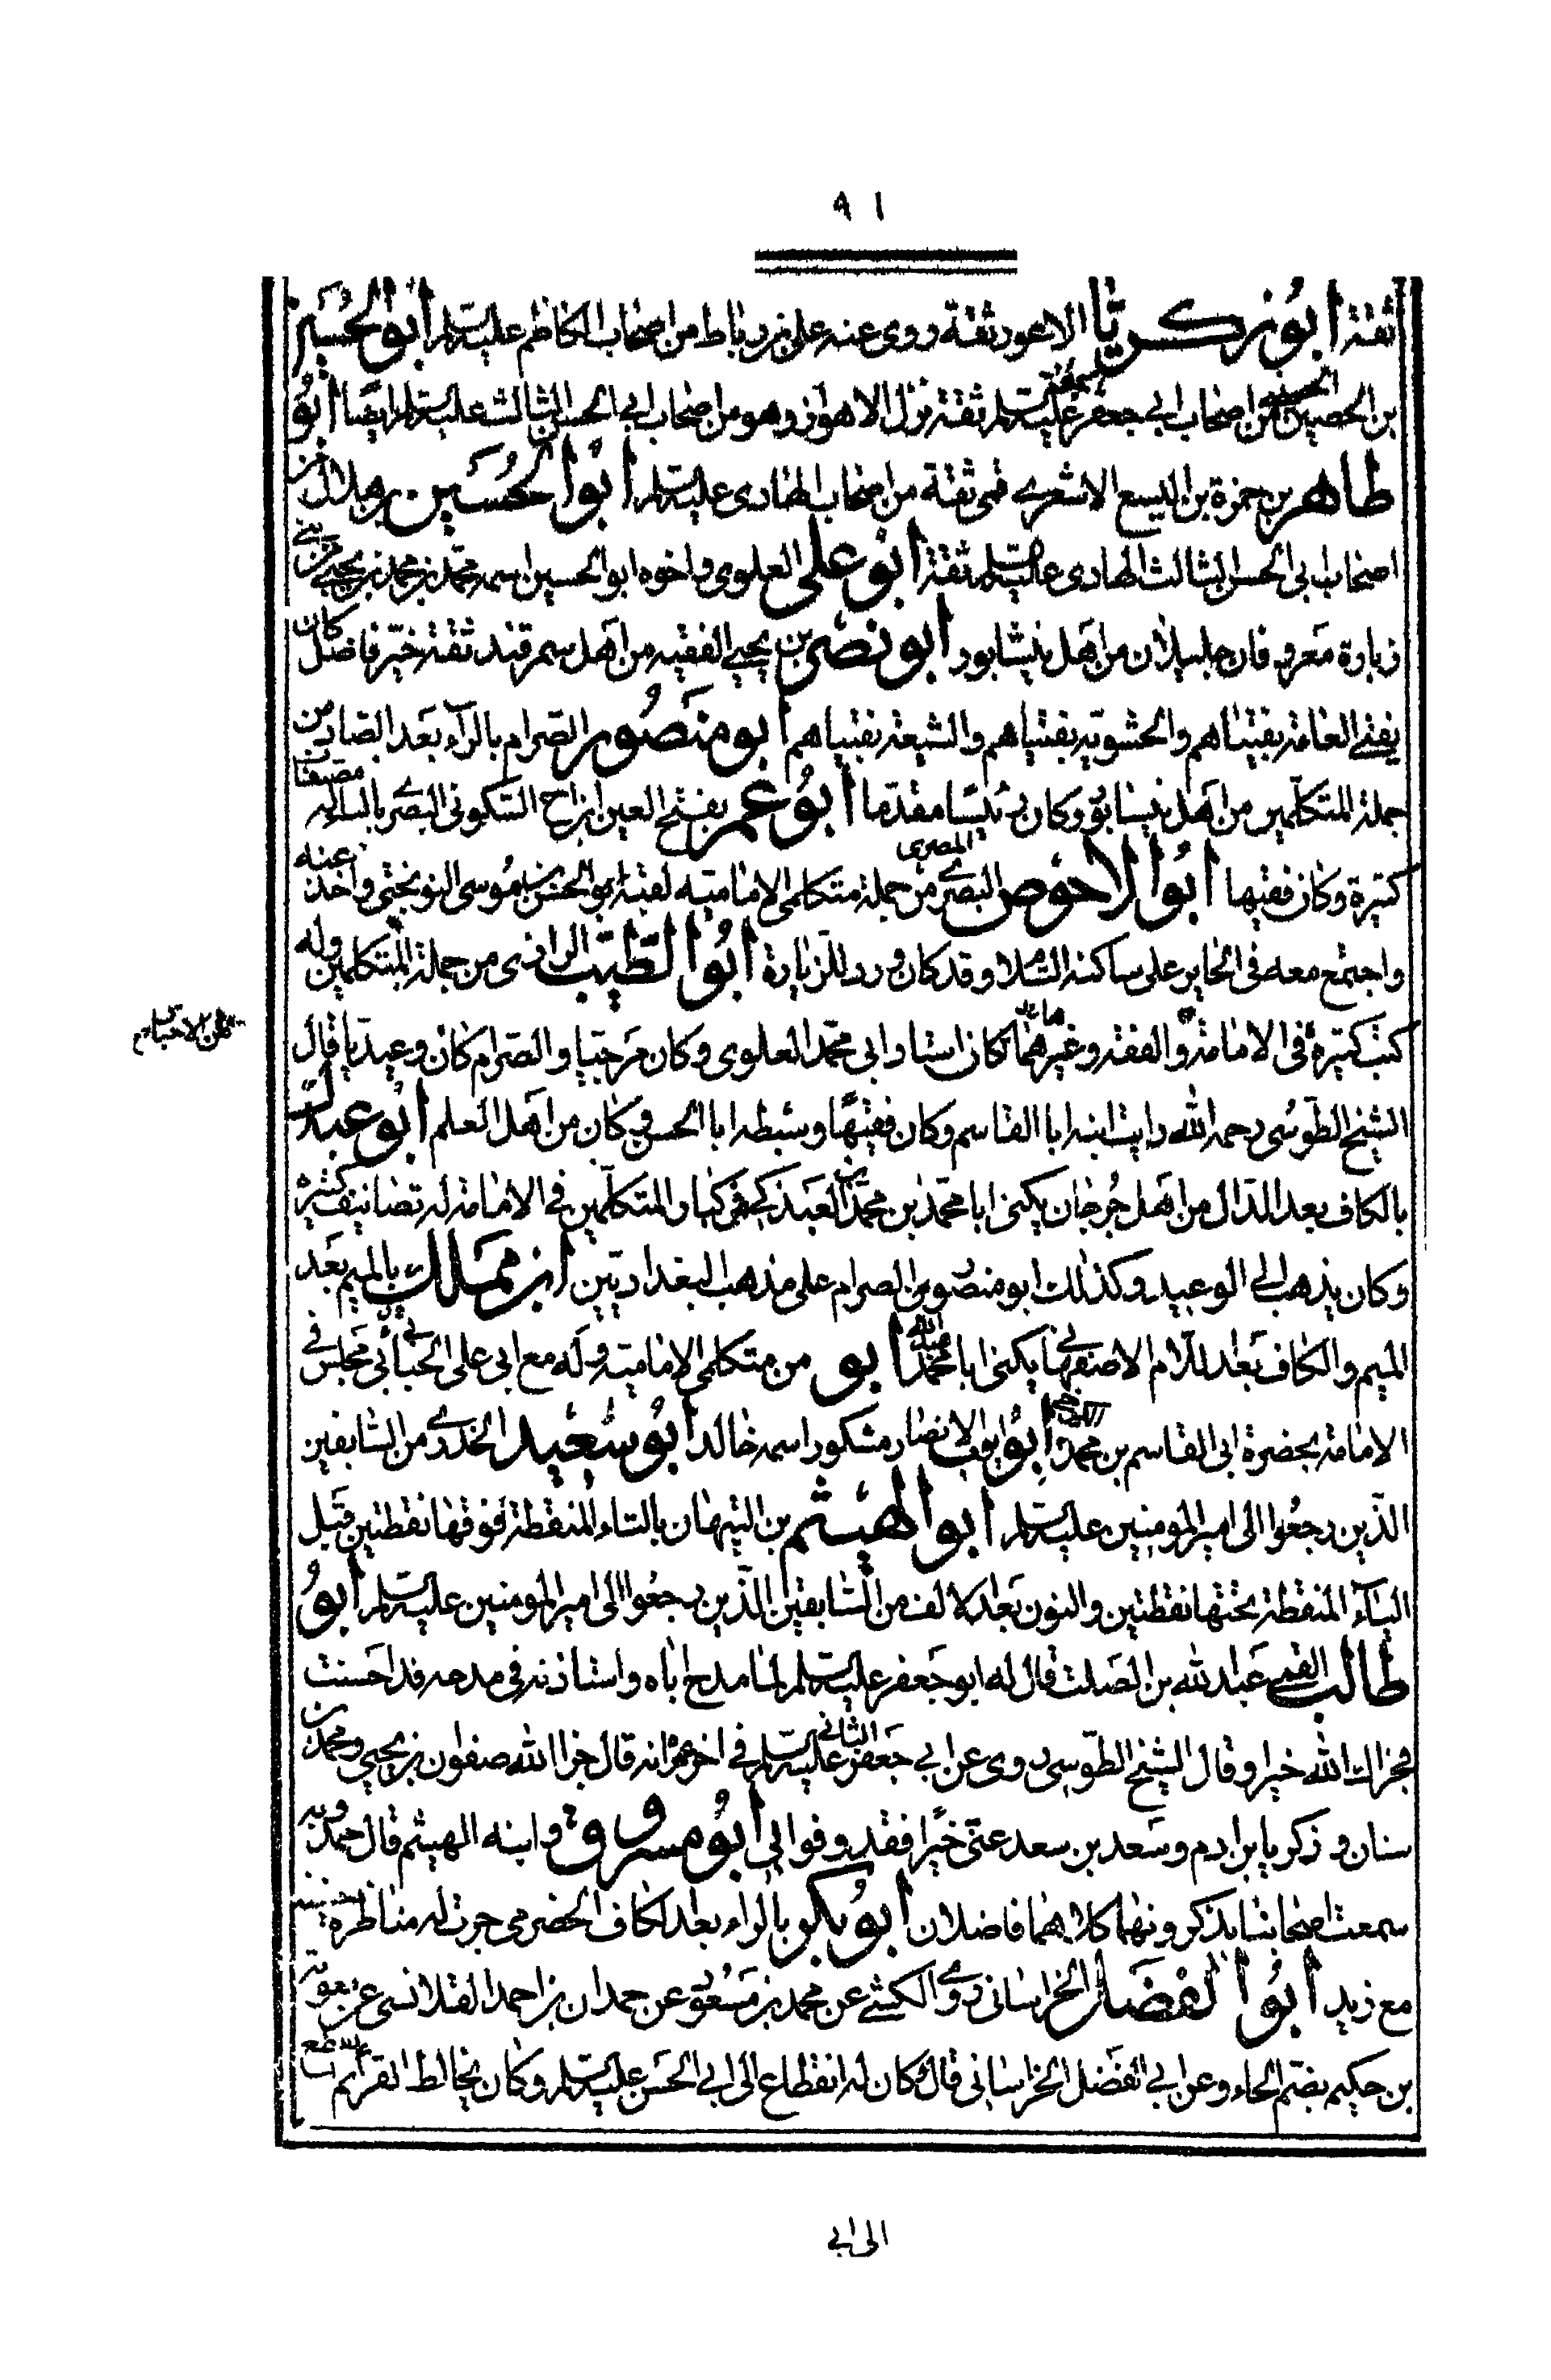 ٩١
ثقة ابو زكريا الاعور ثقة روى عنه علي بن رباط من اصحاب الكاظم عليه السلم ابو الحسين
بن الحصين الحصينى من اصحاب ابي جعفر عليه السلم ثقة نزل الاهواز وهو من اصحاب ابي الحسن الثالث عليه السلم ايضا ابو
طاهر بن حمزة بن اليسع الاشعرى قمى ثقة من اصحاب الهادى عليه السلم ابو الحسين بن هلال من
اصحاب ابي الحسن الثالث الهادى عليه السلم ثقة ابو على العلوى واخوه ابو الحسين اسمه محمد بن محمد بن يحيى من بنى
زبارة معروفان جليلان من اهل نيشابور ابو نصر بن يحيى الفقيه من اهل سمرقند ثقة خير فاضل كان
يفتى العامة بفتياهم والحشوية بفتياهم والشيعة بفتياهم ابو منصور الصرام بالراء بعد الصاد من
جملة المتكلمين من اهل نيسابور وكان رئيسا مقدما ابو عمر بفتح العين ابن اخ السكونى البصرى بالباء له مصنفات
كثيرة وكان فقيها ابو الاحوص البصرى المصرى من جملة متكلمى الامامية لقيه ابو الحسن بن موسى النوبختى واخذ عنه
واجتمع معه فى الحاير على ساكنه السلام وقد كان ورد للزيارة ابو الطيب الرازى من جملة المتكلمين وله
كتب كثيرة فى الامامة والفقه وغيرهما كان استاد ابى محمد العلوى وكان مرجئيا والصرام كان وعيديا قال
الشيخ الطوسى رحمه الله رايت ابنه ابا القاسم وكان فقيها وسبطه ابا الحسن وكان من اهل العلم ابو عبدك
بالكاف بعد الدال من اهل جرجان يكنى ابا محمد بن محمد بن على العبدكى من كبار المتكلمين فى الامامة له تصانيف كثيرة
وكان يذهب الى الوعيد وكذلك ابو منصور الصرام على مذهب البغداديين ابن مملك بالميم بعد
الميم والكاف بعد اللام الاصفهانى يكنى ابا محمد ابو عبدالله من متكلمى الامامية وله مع ابى على الجبائى مجلس فى
الامامة بحضرة ابى القاسم بن محمد الكرخى ابو ايوب الانصارى مشكور اسمه خالد ابو سعيد الخدرى من السابقين
الذين رجعوا الى امير المومنين عليه السلم ابو الهيثم بن التيهان بالتاء المنقطة فوقها نقطتين قبل
الياء المنقطة تحتها نقطتين والنون بعد الالف من السابقين الذين رجعوا الى امير المومنين عليه السلم ابو
طالب القمى عبد الله بن الصلت قال له ابو جعفر عليه السلم لما مدح اباه واستاذنه فى مدحه قد احسنت
فجزاك الله خيرا وقال الشيخ الطوسى روى عن ابي جعفر الثانى عليه السلم فى اخر عمره انه قال جزا الله صفوان بن يحيى ومحمد بن
سنان وزكريا بن ادم وسعد بن سعد عنى خيرا فقد وفوا لى ابو مسروق وابنه الهيثم قال حمدويه
سمعت اصحابنا يذكرونهما كلاهما فاضلان ابو بكر بالراء بعد الكاف الحضرمى جرت له مناظرة حسنة
مع زيد ابو الفضل الخراسانى روى الكشى عن محمد بن مسعود عن حمدان بن احمد القلانسى عن معوية
بن حكيم بضم الحاء وعن ابي الفضل الخراسانى قال وكان له انقطاع الى ابي الحسن عليه السلم وكان يخالط القراء ثم انقطع
الى ابي